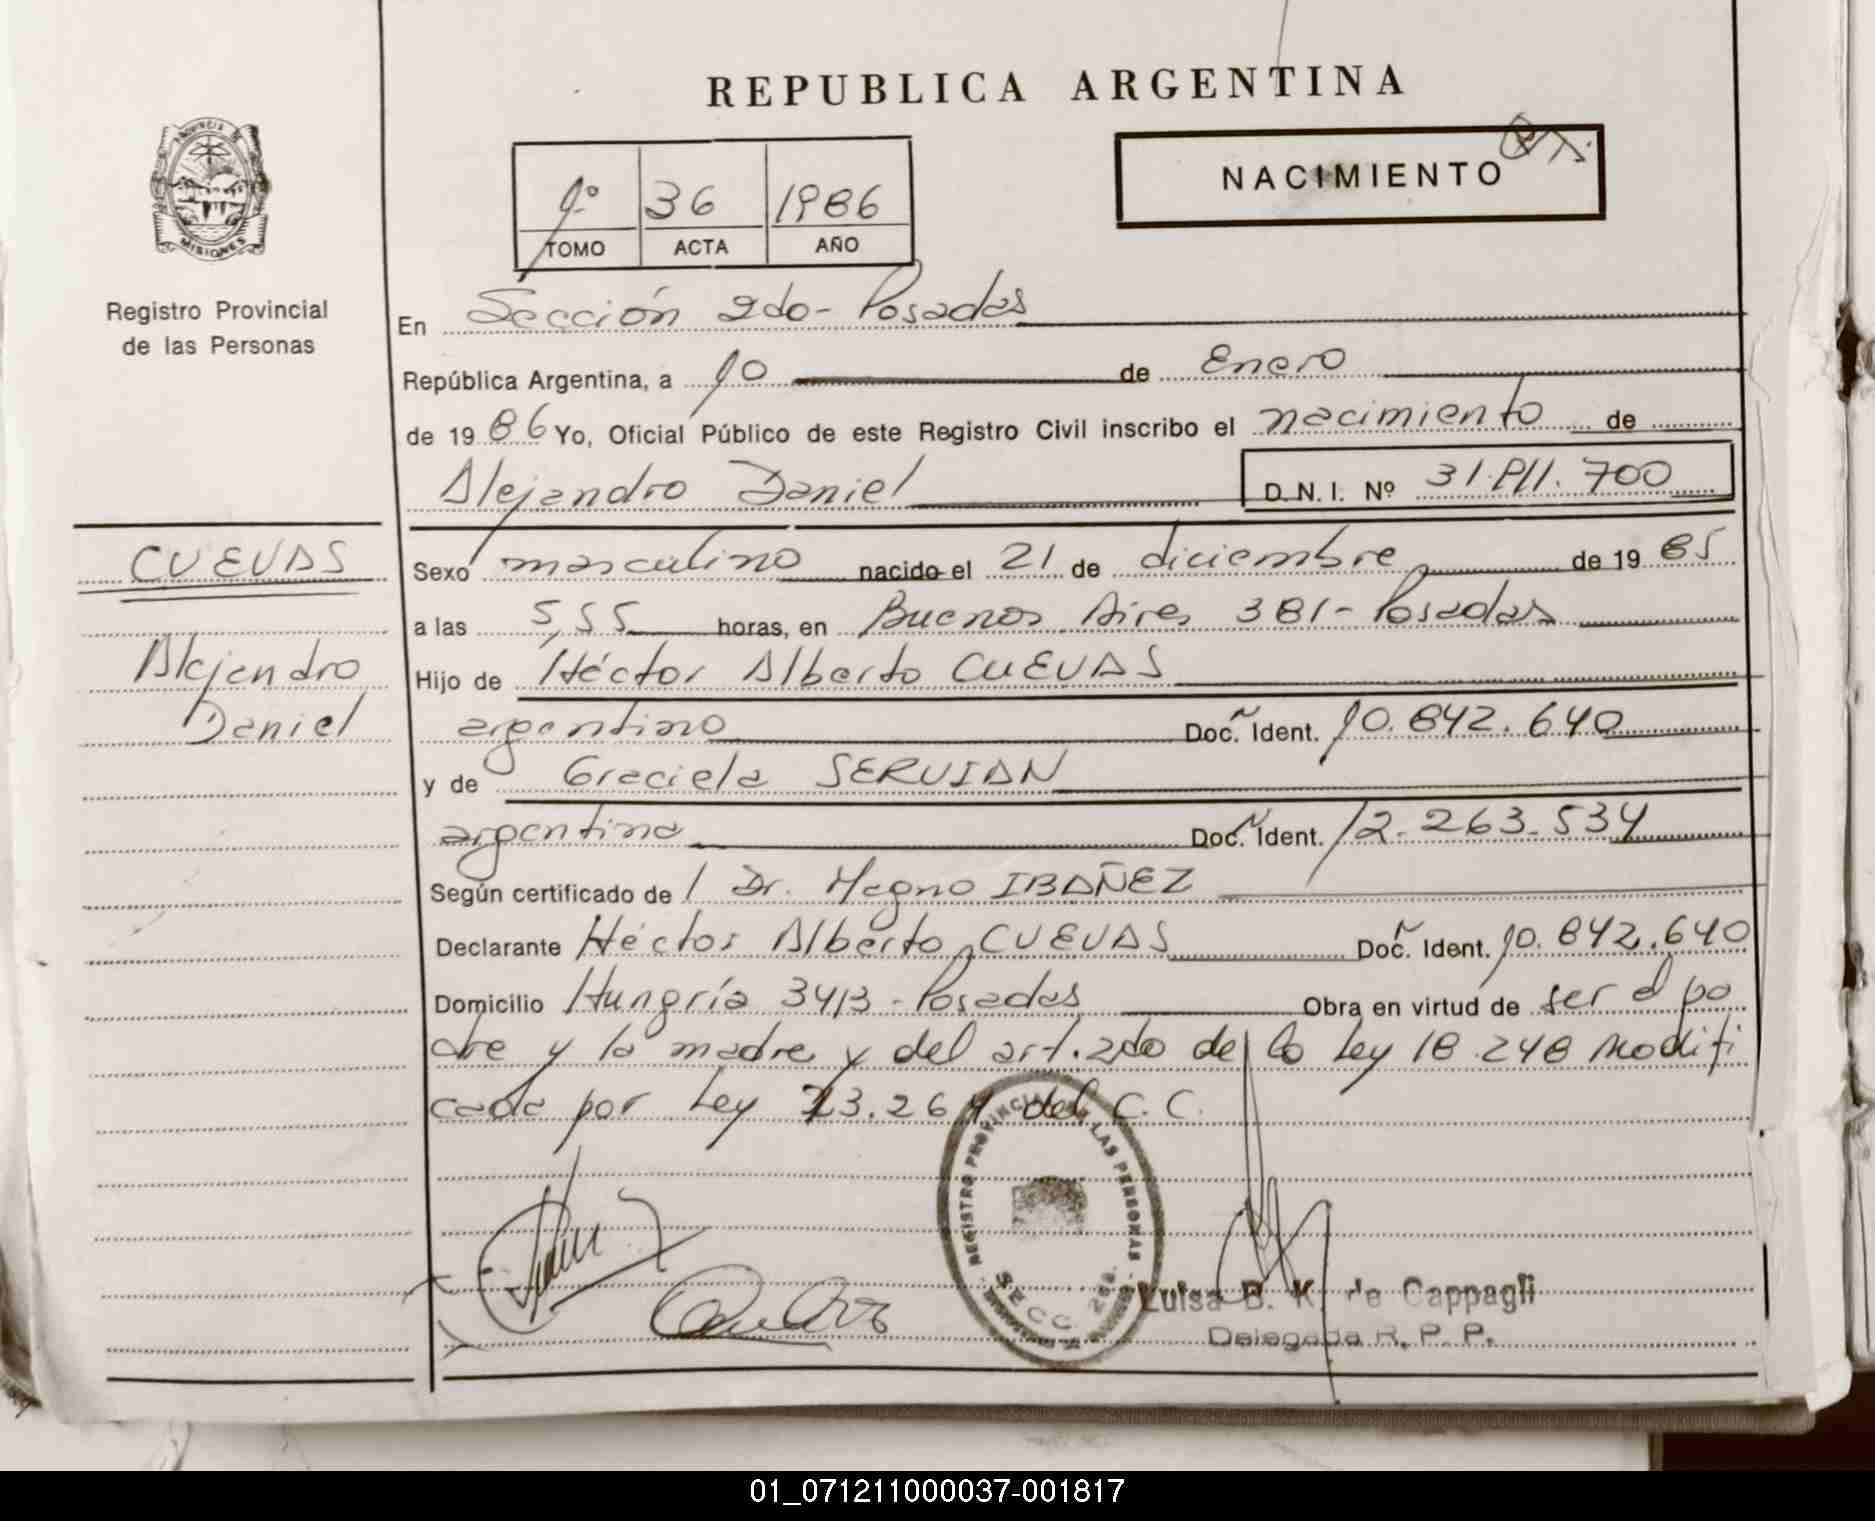 REPUBLICA ARGENTINA
PROVINCIA DE
MISIONES
Registro Provincial
de las Personas
1º 36 1986
TOMO ACTA AÑO
NACIMIENTO
En Sección 2do- Posadas
República Argentina, a 10 de Enero
de 1986 Yo, Oficial Público de este Registro Civil inscribo el nacimiento de
Alejandro Daniel D. N. I. Nº 31.911.700
CUEVAS
Alejandro
Daniel
Sexo masculino nacido el 21 de diciembre de 1985
a las 5,55 horas, en Buenos Aires 381- Posadas
Hijo de Héctor Alberto CUEVAS
argentino Doc. Ident. 10.842.640
y de Graciela SERVIAN
argentina Doc. Ident. 12.263.534
Según certificado de 1 Dr. Magno IBAÑEZ
Declarante Héctor Alberto CUEVAS Doc. Ident. 10.842.640
Domicilio Hungría 3413 - Posadas Obra en virtud de ser el pa
dre y la madre y del art. 2do de la ley 18.248 modifi
cada por Ley 23.264 del C.C.
REGISTRO PROVINCIAL DE LAS PERSONAS
SECC. 2da.
Luisa B. K. de Cappagli
Delegada R. P. P.
01_071211000037-001817